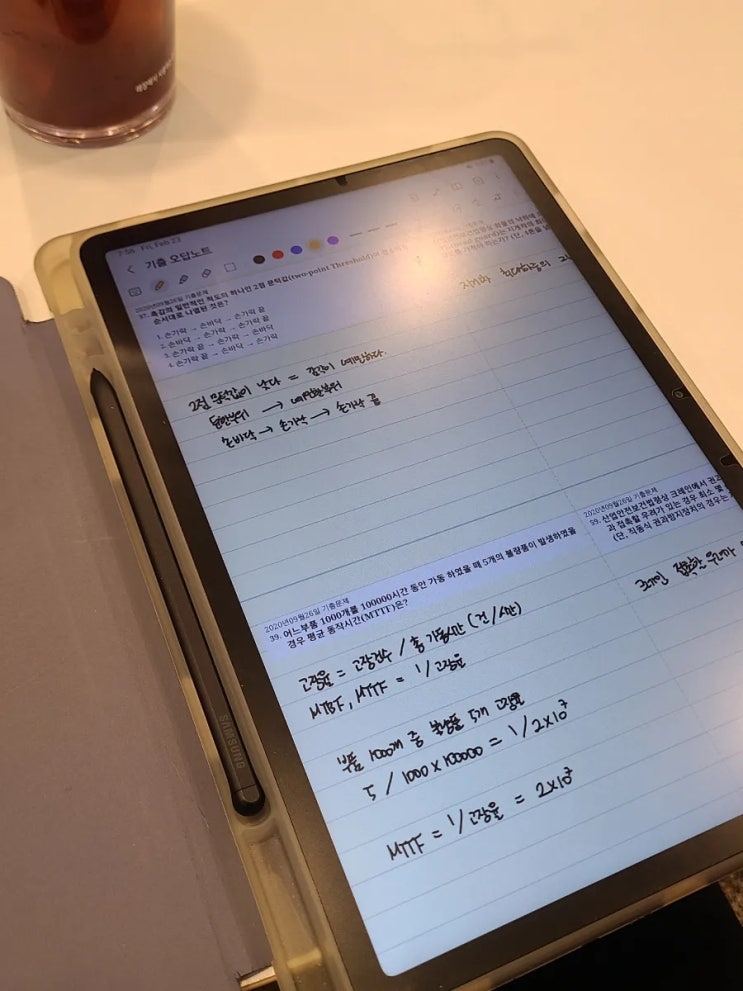 7:56 Fri Feb 23
기출 오답노트
2020년09월26일 기출문제
37. 촉감의 일반적인 척도의 하나인 2점 문턱값(two-point Threshold)이
순서대로 나열된 것은?
1. 손가락 → 손바닥 → 손가락 끝
2. 손바닥 → 손가락 → 손가락 끝
3. 손가락 끝 → 손가락 → 손바닥
4. 손가락 끝 → 손바닥 → 손가락
2점 문턱값이 낮다 = 감각이 예민하다.
둔한부위 → 예민한부위
손바닥 → 손가락 → 손가락 끝
2020년09월26일 기출문제
39. 어느부품 1000개를 100000시간 동안 가동 하였을 때 5개의 불량품이 발생하였을
경우 평균 동작시간(MTTF)은?
고장율 = 고장건수 / 총 가동시간 (건/시간)
MTBF, MTTF = 1/고장율
부품 1000개 중 불량품 5개 고장율
5 / 1000 x 100000 = 1/2x10⁷
MTTF = 1/고장율 = 2x10⁷
지게차 최대하중의
2020년09월26일 기출문제
59. 산업안전보건법령상 크레인에서 권과
과 접촉할 우려가 있는 경우 최소 몇
(단, 직동식 권과방지장치의 경우는
SAMSUNG